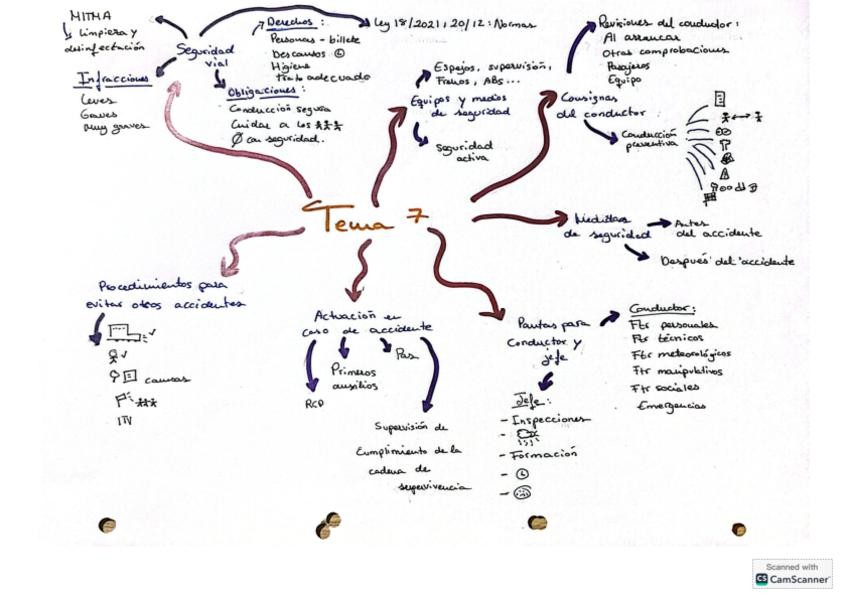 MITMA
limpieza y
desinfectación
Seguridad
vial
Infracciones
Leves
Graves
Muy graves
Derechos :
Personas - billete
Descansos
Higiene
trato adecuado
Obligaciones :
Conducción segura
Cuidar a los
con seguridad.
Ley 18/2021, 20/12 : Normas
Espejos, supervisión,
Frenos, ABS ...
Equipos y medios
de seguridad
Seguridad
activa
Revisiones del conductor :
Al arrancar
Otras comprobaciones
Pasajeros
Equipo
Consignas
del conductor
Conducción
preventiva
Tema 7
Medidas
de seguridad
Antes
del accidente
Después del accidente
Procedimientos para
evitar otros accidentes
causas
ITV
Actuación en
caso de accidente
Pas
Primeros
auxilios
RCP
Supervisión de
Cumplimiento de la
cadena de
supervivencia
Pautas para
Conductor y
jefe
Conductor :
Ftr personales
Ftr técnicos
Ftr meteorológicos
Ftr manipulativos
Ftr sociales
Emergencias
Jefe :
- Inspecciones
-
- Formación
-
-
Scanned with
CS CamScanner